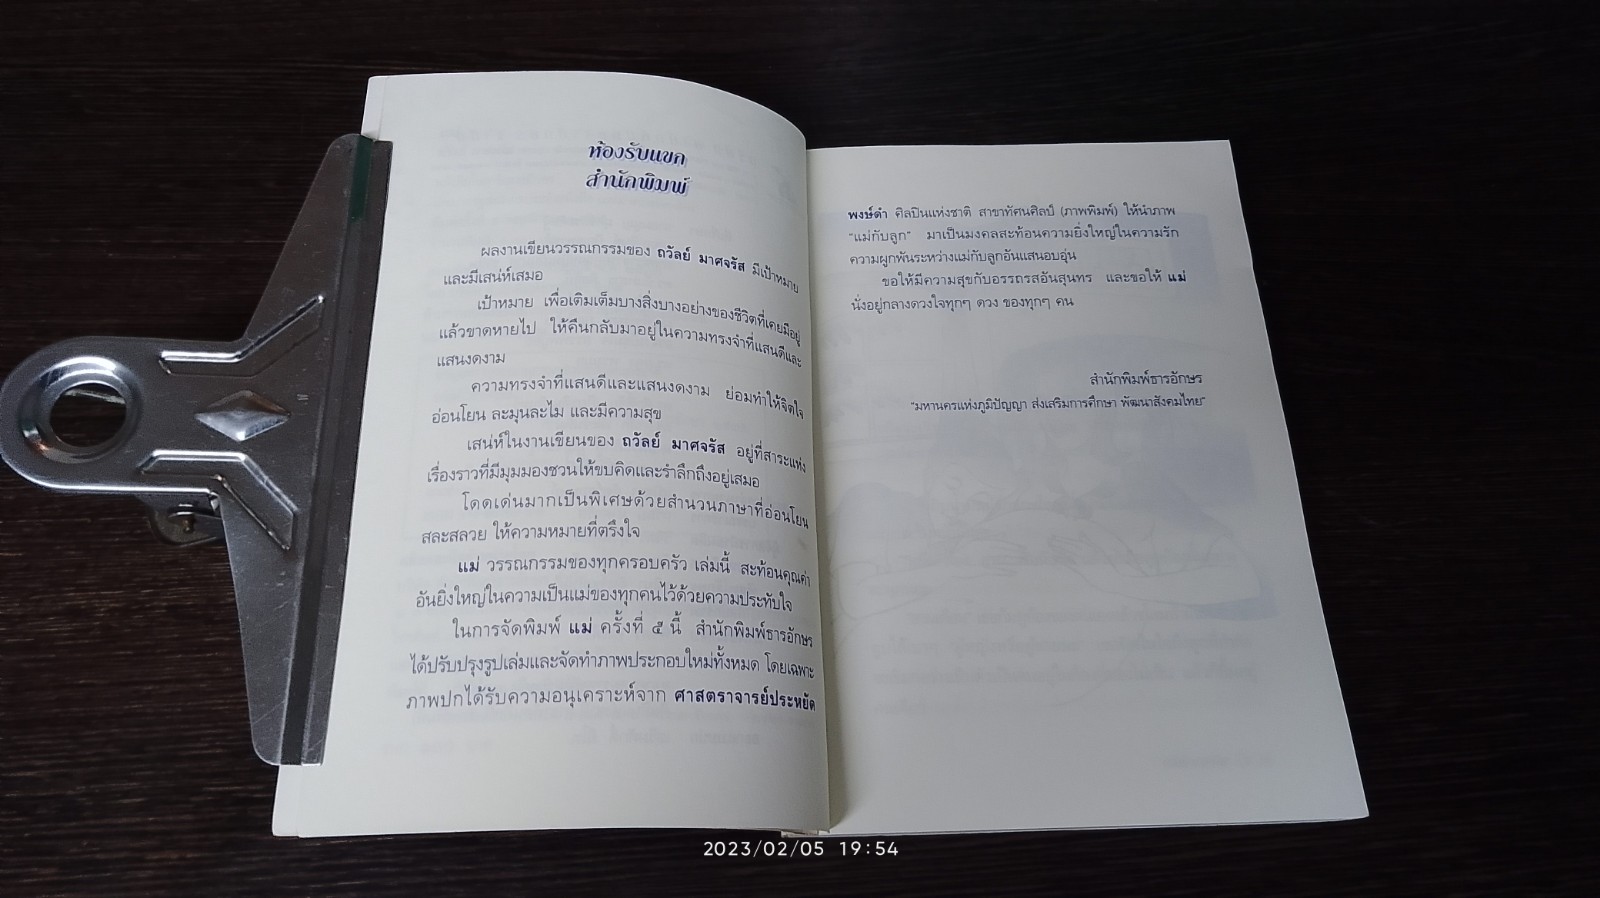 ห้องรับแขก
สำนักพิมพ์
ผลงานเขียนวรรณกรรมของ ถวัลย์ มาศจรัส มีเป้าหมาย
และมีเสน่ห์เสมอ
เป้าหมาย เพื่อเติมเต็มบางสิ่งบางอย่างของชีวิตที่เคยมีอยู่
แล้วขาดหายไป ให้คืนกลับมาอยู่ในความทรงจำที่แสนดีและ
แสนงดงาม
ความทรงจำที่แสนดีและแสนงดงาม ย่อมทำให้จิตใจ
อ่อนโยน ละมุนละไม และมีความสุข
เสน่ห์ในงานเขียนของ ถวัลย์ มาศจรัส อยู่ที่สาระแห่ง
เรื่องราวที่มีมุมมองชวนให้ขบคิดและรำลึกถึงอยู่เสมอ
โดดเด่นมากเป็นพิเศษด้วยสำนวนภาษาที่อ่อนโยน
สละสลวย ให้ความหมายที่ตรึงใจ
แม่ วรรณกรรมของทุกครอบครัว เล่มนี้ สะท้อนคุณค่า
อันยิ่งใหญ่ในความเป็นแม่ของทุกคนไว้ด้วยความประทับใจ
ในการจัดพิมพ์ แม่ ครั้งที่ ๕ นี้ สำนักพิมพ์ธารอักษร
ได้ปรับปรุงรูปเล่มและจัดทำภาพประกอบใหม่ทั้งหมด โดยเฉพาะ
ภาพปกได้รับความอนุเคราะห์จาก ศาสตราจารย์ประหยัด
พงษ์ดำ ศิลปินแห่งชาติ สาขาทัศนศิลป์ (ภาพพิมพ์) ให้นำภาพ
"แม่กับลูก" มาเป็นมงคลสะท้อนความยิ่งใหญ่ในความรัก
ความผูกพันระหว่างแม่กับลูกอันแสนอบอุ่น
ขอให้มีความสุขกับอรรถรสอันสุนทร และขอให้ แม่
นั่งอยู่กลางดวงใจทุกๆ ดวง ของทุกๆ คน
สำนักพิมพ์ธารอักษร
"มหานครแห่งภูมิปัญญา ส่งเสริมการศึกษา พัฒนาสังคมไทย"
2023/02/05 19:54